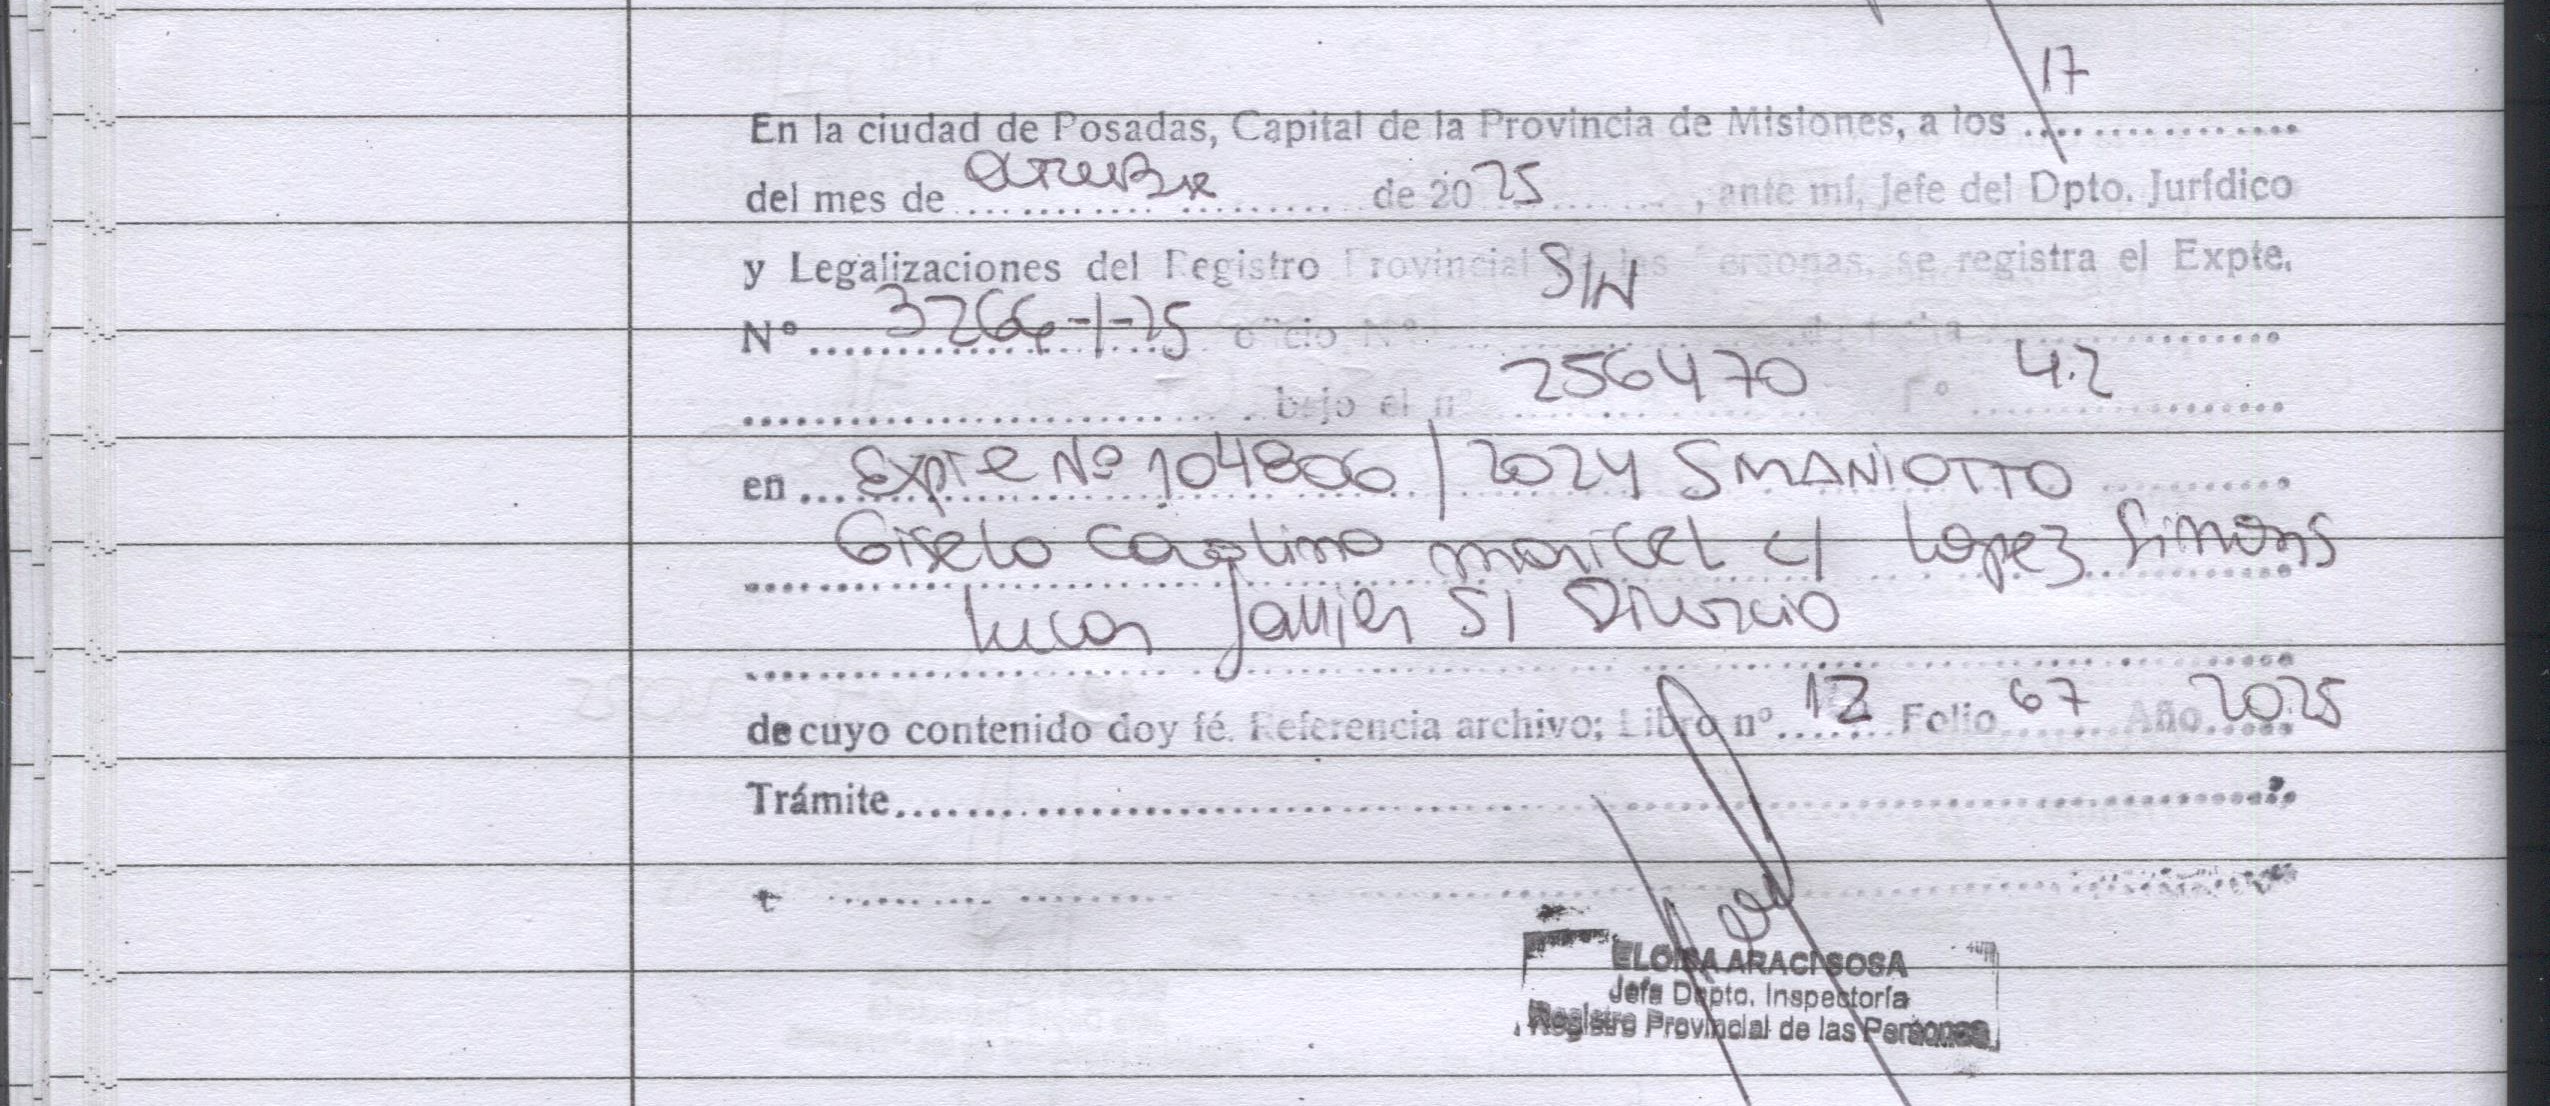 17
En la ciudad de Posadas, Capital de la Provincia de Misiones, a los ................
del mes de octubre de 2025, ante mí, Jefe del Dpto. Jurídico
y Legalizaciones del Registro Provincial de las Personas, se registra el Expte.
Nº 3266-1-25 oficio Nº S/N de fecha ................
................ bajo el nº 256470 Fº 4.2
en Expte Nº 104806/2024 SMANIOTTO
Gisela Carolina Maricel c/ Lopez Simons
Lucas Javier S/ Divorcio
de cuyo contenido doy fé. Referencia archivo; Libro nº 12 Folio 67 Año 2025
Trámite................
ELOISA ARACI SOSA
Jefa Dpto. Inspectoría
Registro Provincial de las Personas